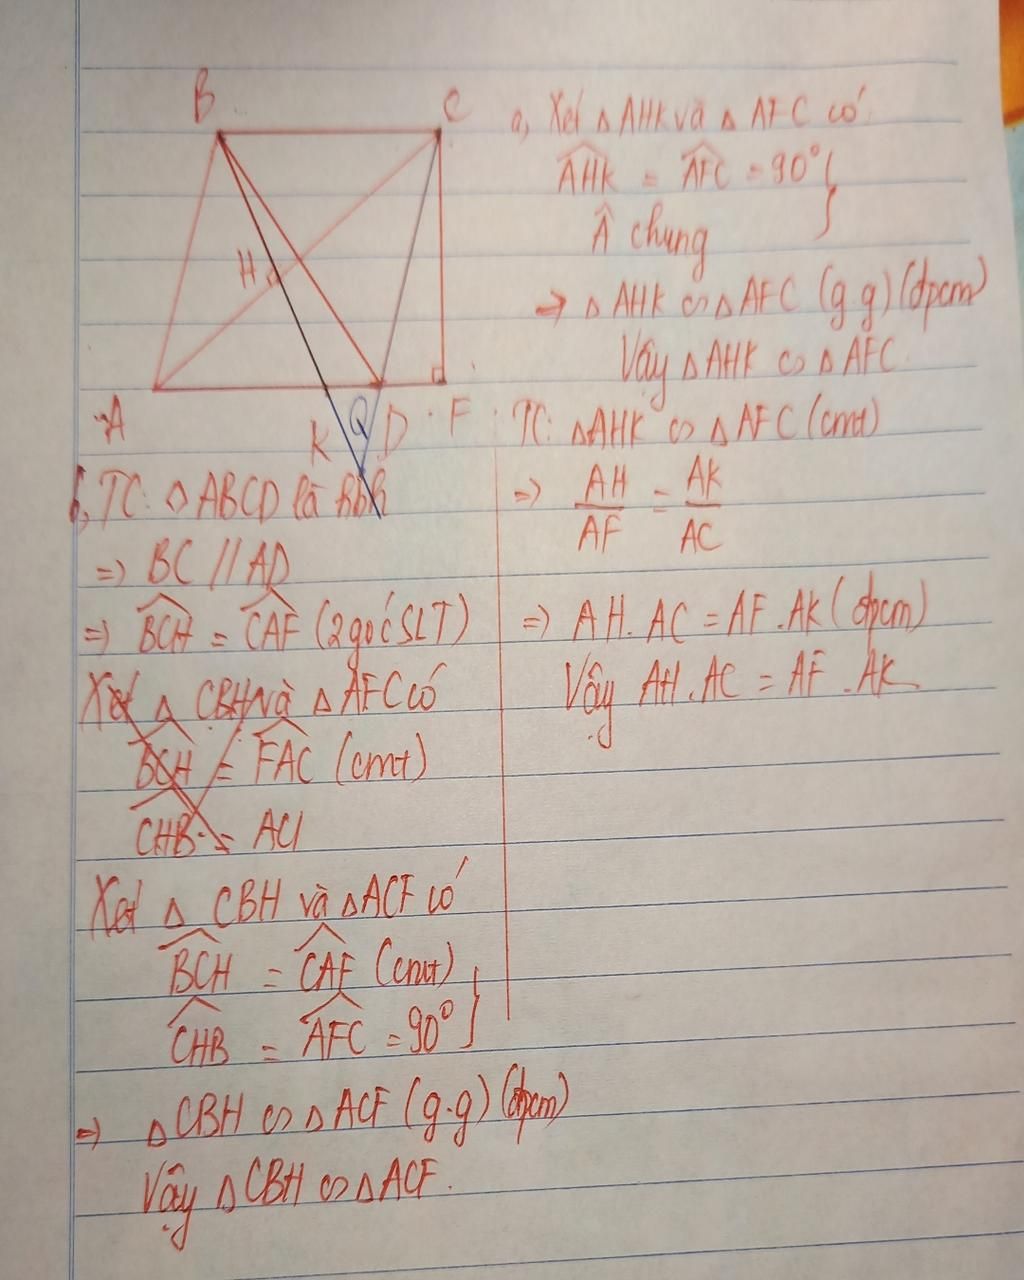 B
C
H
A
K
Q
D
F
a, Xét △AHK và △ AFC có
AHK = AFC = 90° }
 chung
=> △ AHK ∽ △ AFC (g.g) (đpcm)
Vậy △AHK ∽ △AFC.
TC: △AHK ∽ △AFC (cmt)
=> AH/AF = AK/AC
=> AH.AC = AF.AK (đpcm)
Vậy AH.AC = AF.AK
b, TC: ◇ ABCD là hbh
=> BC // AD
=> BCH = CAF (2 góc SLT)
Xét △ CBH và △ AFC có
BCH = FAC (cmt)
CHB = ACI
Xét △ CBH và △ACF có
BCH = CAF (cmt)
CHB = AFC = 90° }
=> △CBH ∽ △ACF (g.g) (đpcm)
Vậy △CBH ∽ △ACF.